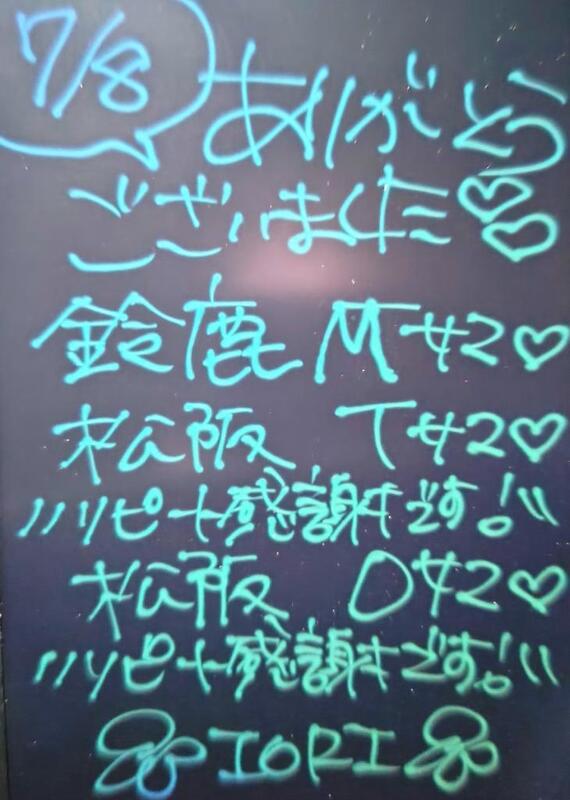 7/8
ありがとう
ございました♡♡
鈴鹿 Mサマ♡
松阪 Tサマ♡
\\リピート感謝です!//
松阪 Oサマ♡
\\リピート感謝です!//
IORI